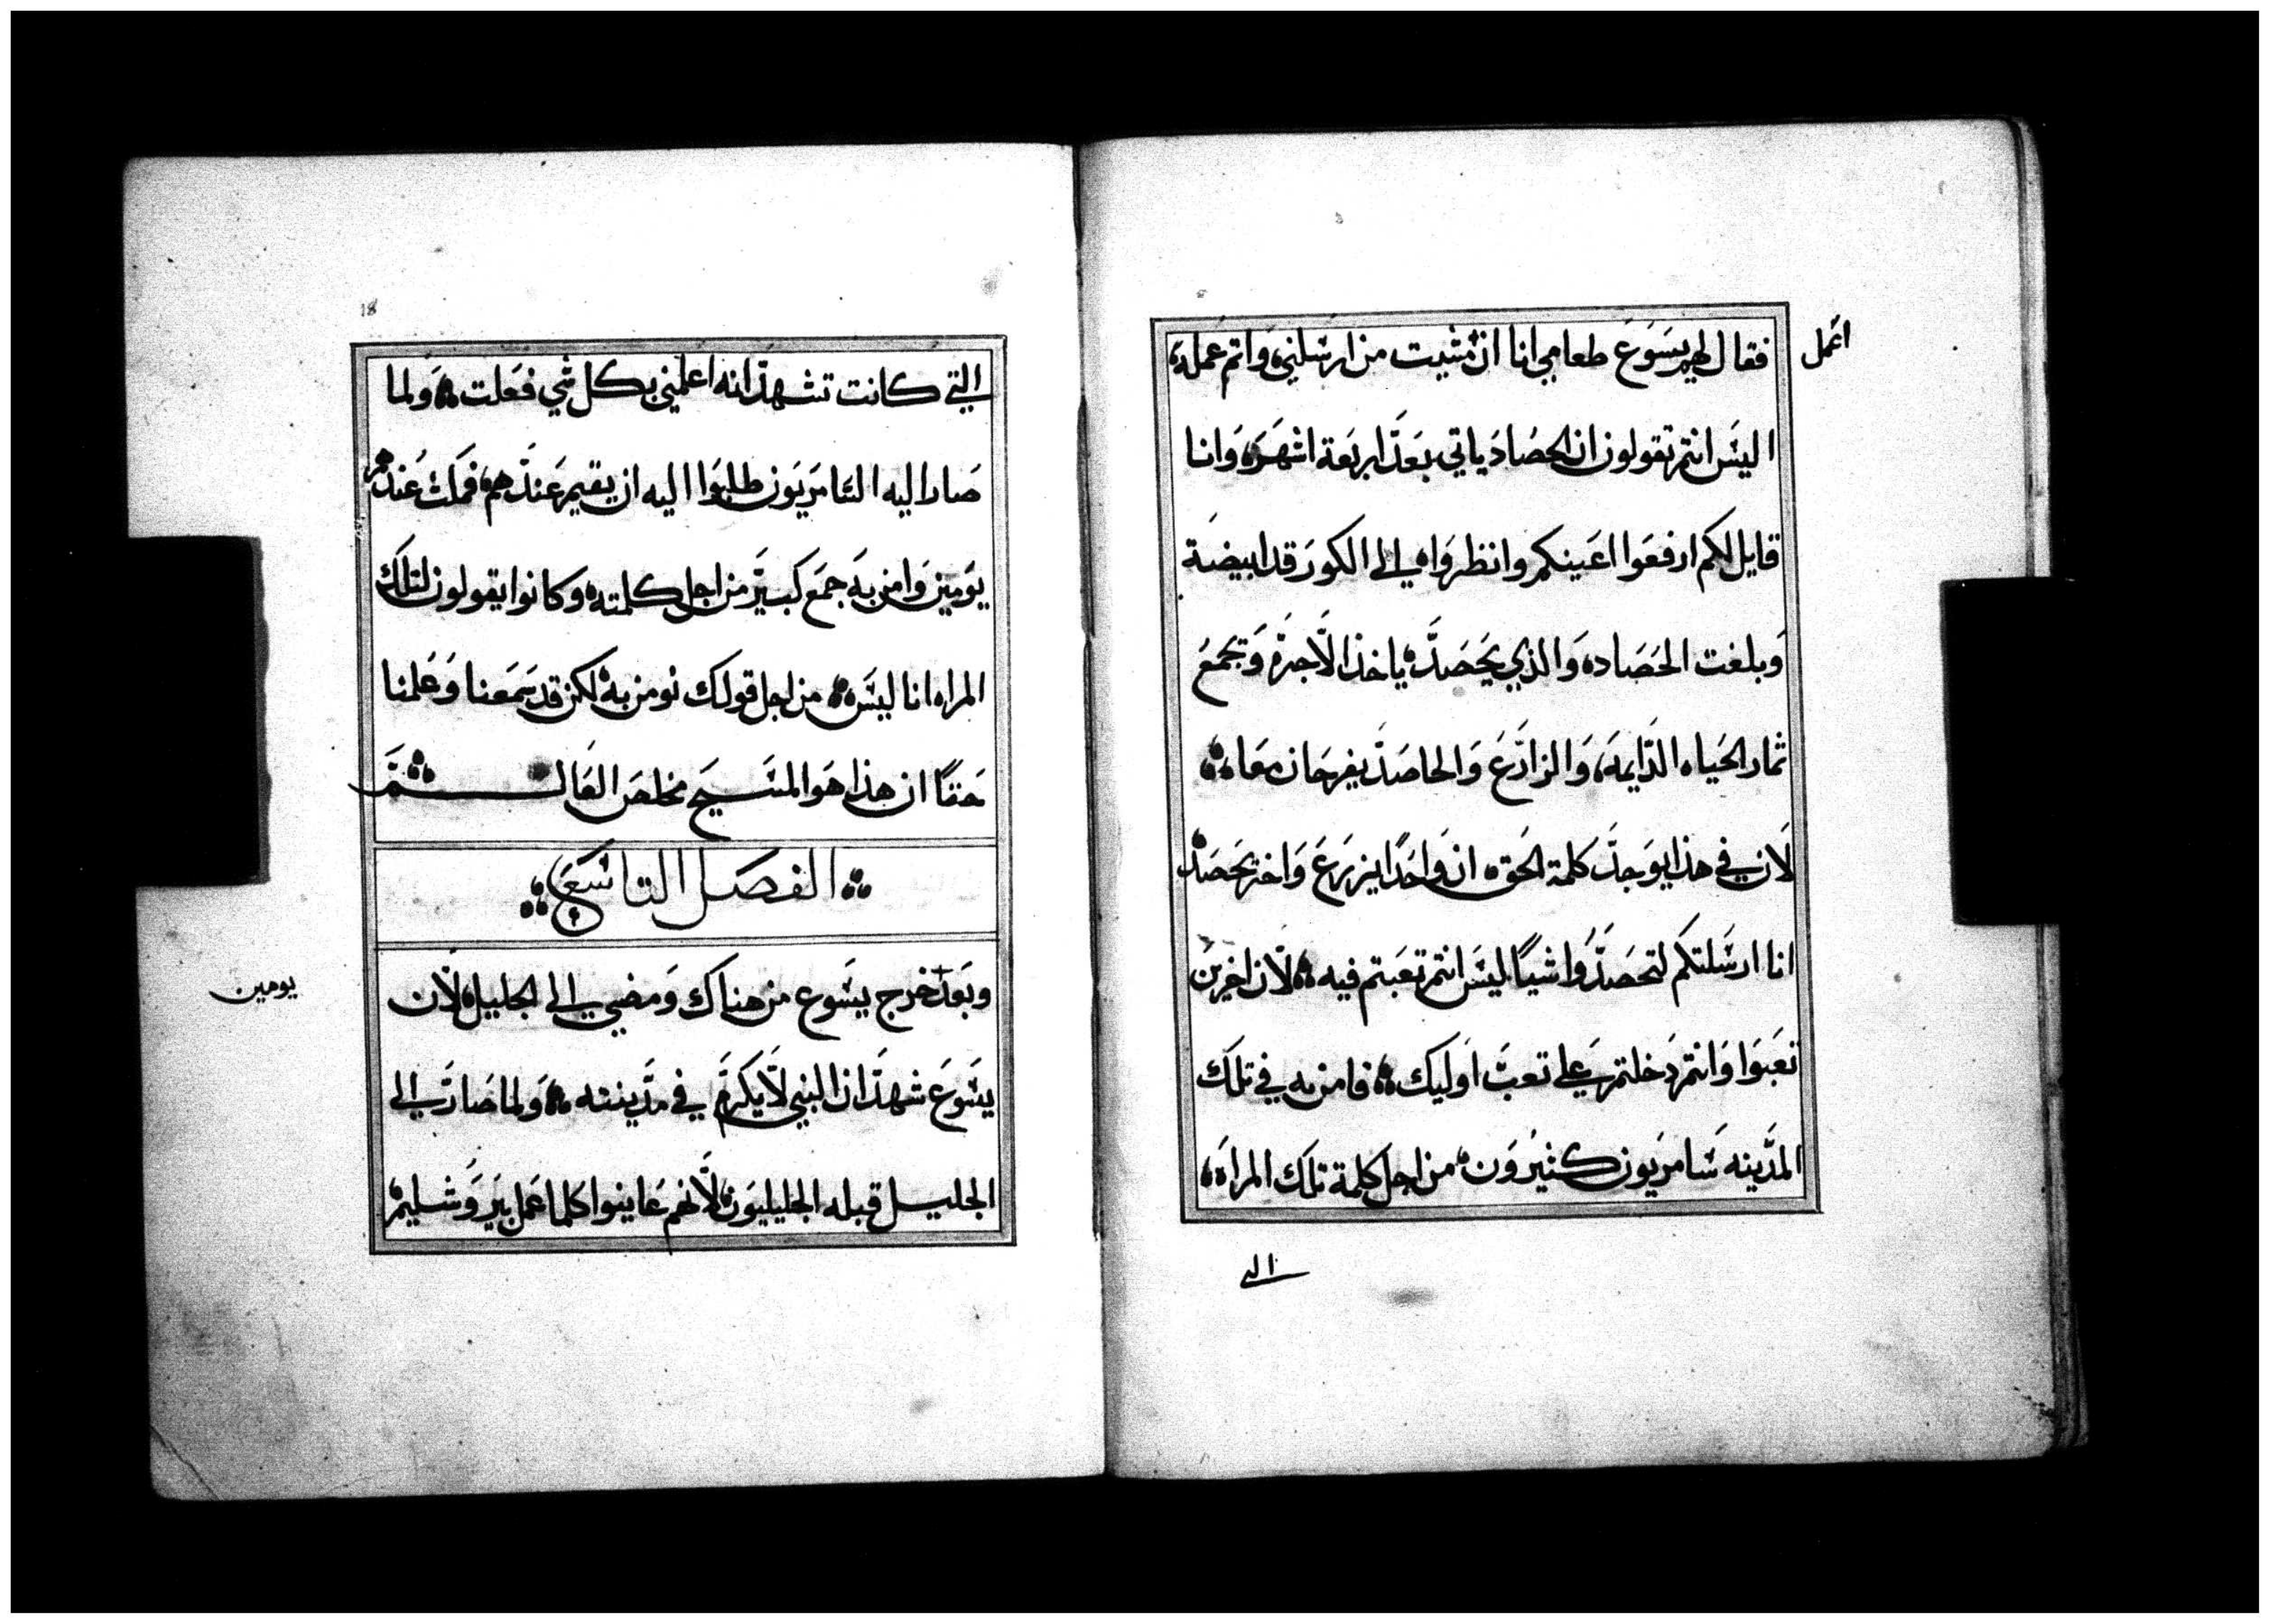 اعمل
فقال لهم يسوع طعامي انا ان مشيت من ارسلني واتم عمله
اليس انتم تقولون ان الحصاد ياتي بعد اربعة اشهر وانا
قايل لكم ارفعوا اعينكم وانظروا الى الكور قد ابيضة
وبلغت الحصاد والذي يحصد ياخذ الاجرة ويجمع
ثمار الحياه الدايمه والزارع والحاصد يفرحان معا
لان في هذا يوجد كلمة الحق ان واحدا يزرع واخر يحصد
انا ارسلتكم لتحصدوا شيا ليس انتم تعبتم فيه لان اخرين
تعبوا وانتم دخلتم على تعب اوليك فامن به في تلك
المدينه سامريون كثيرون من اجل كلمة تلك المراة
التي
18
التي كانت تشهد انه اعلمني بكل شي فعلت ولما
صار اليه السامريون طلبوا اليه ان يقيم عندهم فمكث عندهم
يومين وامن به جمع كبير من اجل كلمته وكانوا يقولون لتلك
المراه انا ليس من اجل قولك نومن به لكن قد سمعنا وعلمنا
حقا ان هذا هو المسيح مخلص العالم
الفصل التاسع
وبعد خرج يسوع من هناك ومضي الى الجليل لان
يومين
يسوع شهد ان النبي لا يكرم في مدينته ولما صار الى
الجليل قبله الجليليون لانهم عاينوا كلما عمل بيروشليم